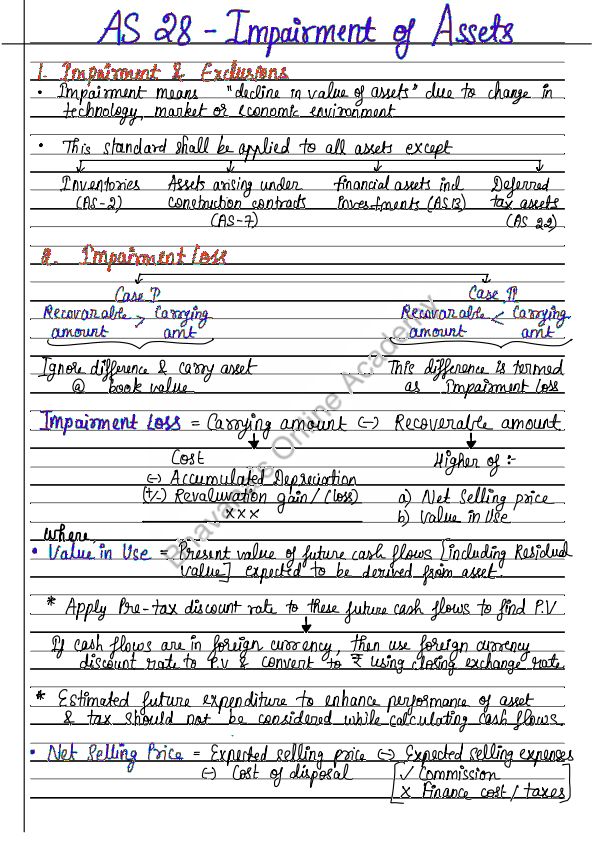 AS 28 - Impairment of Assets
1. Impairment & Exclusions
• Impairment means "decline in value of assets" due to change in
technology, market or economic environment
• This standard shall be applied to all assets except
Inventories Assets arising under financial assets incl Deferred
(AS-2) construction contracts Investments (AS 13) tax assets
(AS-7) (AS 22)
2. Impairment loss
Case I Case II
Recovarable > Carrying Recovarable < Carrying
amount amt amount amt
Ignore difference & carry asset This difference is termed
@ book value as Impairment loss
Impairment Loss = Carrying amount (-) Recoverable amount
Cost Higher of :-
(-) Accumulated Depreciation
(+/-) Revaluvation gain/(loss) a) Net Selling price
xxx b) Value in Use
where,
• Value in Use = Present value of future cash flows [including Residual
value] expected to be derived from asset.
* Apply Pre-tax discount rate to these future cash flows to find P.V
If cash flows are in foreign currency, then use foreign currency
discount rate to P.V & convert to ₹ using closing exchange rate.
* Estimated future expenditure to enhance performance of asset
& tax should not be considered while calculating cash flows.
• Net Selling Price = Expected selling price (-) Expected selling expenses
(-) Cost of disposal [✓ Commission
x Finance cost/taxes]
Bhavana's Online Academy